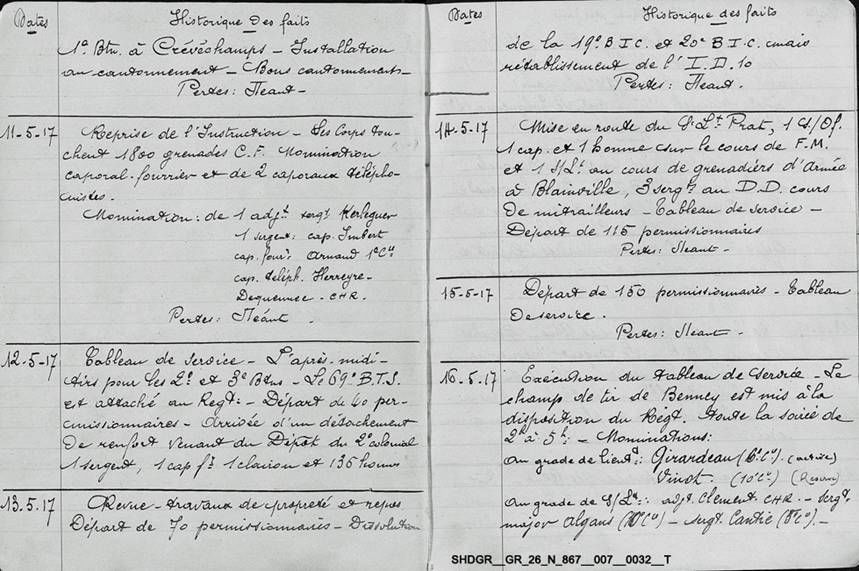 Dates Historique des faits
1er Btn. à Crévéchamps - Installation
au cantonnement - Bons cantonnements -
Pertes: Néant -
11-5-17 Reprise de l'Instruction - Les Corps tou-
chent 1800 grenades C.F. Nomination
caporal-fourrier et de 2 caporaux télépho-
nistes.
Nomination: de 1 adjt. sergt Kerleguer
1 sergent: cap. Imbert
cap. four. Arnaud 1e Cie
cap. téléph. Herreyre -
Dequenne - CHR.
Pertes: Néant.
12-5-17 Tableau de service - L'après-midi -
tirs pour les 2e et 3e Btns - Le 69e B.T.S.
est attaché au Regt: - Départ de 40 per-
missionnaires - Arrivée d'un détachement
de renfort venant du Dépôt du 2e colonial
1 sergent, 1 cap fr 1 clairon et 135 hommes
13.5.17 Revue - travaux de propreté et repos
Départ de 70 permissionnaires - Dissolution
Dates Historique des faits
de la 19e B I C. et 20e B.I.C. mais
rétablissement de l'I.D. 10
Pertes: Néant.
14-5-17 Mise en route du S/Lt Prat, 1 S/Of.
1 cap. et 1 homme sur le cours de F.M.
et 1 S/Lt au cours de grenadiers d'Armée
à Blainville, 3 sergts au D.D. cours
de mitrailleurs - Tableau de service -
Départ de 115 permissionnaires
Pertes: Néant -
15-5-17 Départ de 150 permissionnaires - Tableau
de service.
Pertes: Néant -
16-5-17 Exécution du tableau de service - Le
champ de tir de Benney est mis à la
disposition du Régt. toute la soirée de
2h à 5h: - Nominations:
au grade de lieutt: Girardeau (6e Cie) (active)
Vinot. (10e Cie) (Réserve)
au grade de S/Lt: adjt. Clément CHR - sergt.
major Algans (10e Cie) - sergt. Cantié (8e Cie) -
SHDGR__GR_26_N_867__007__0032__T